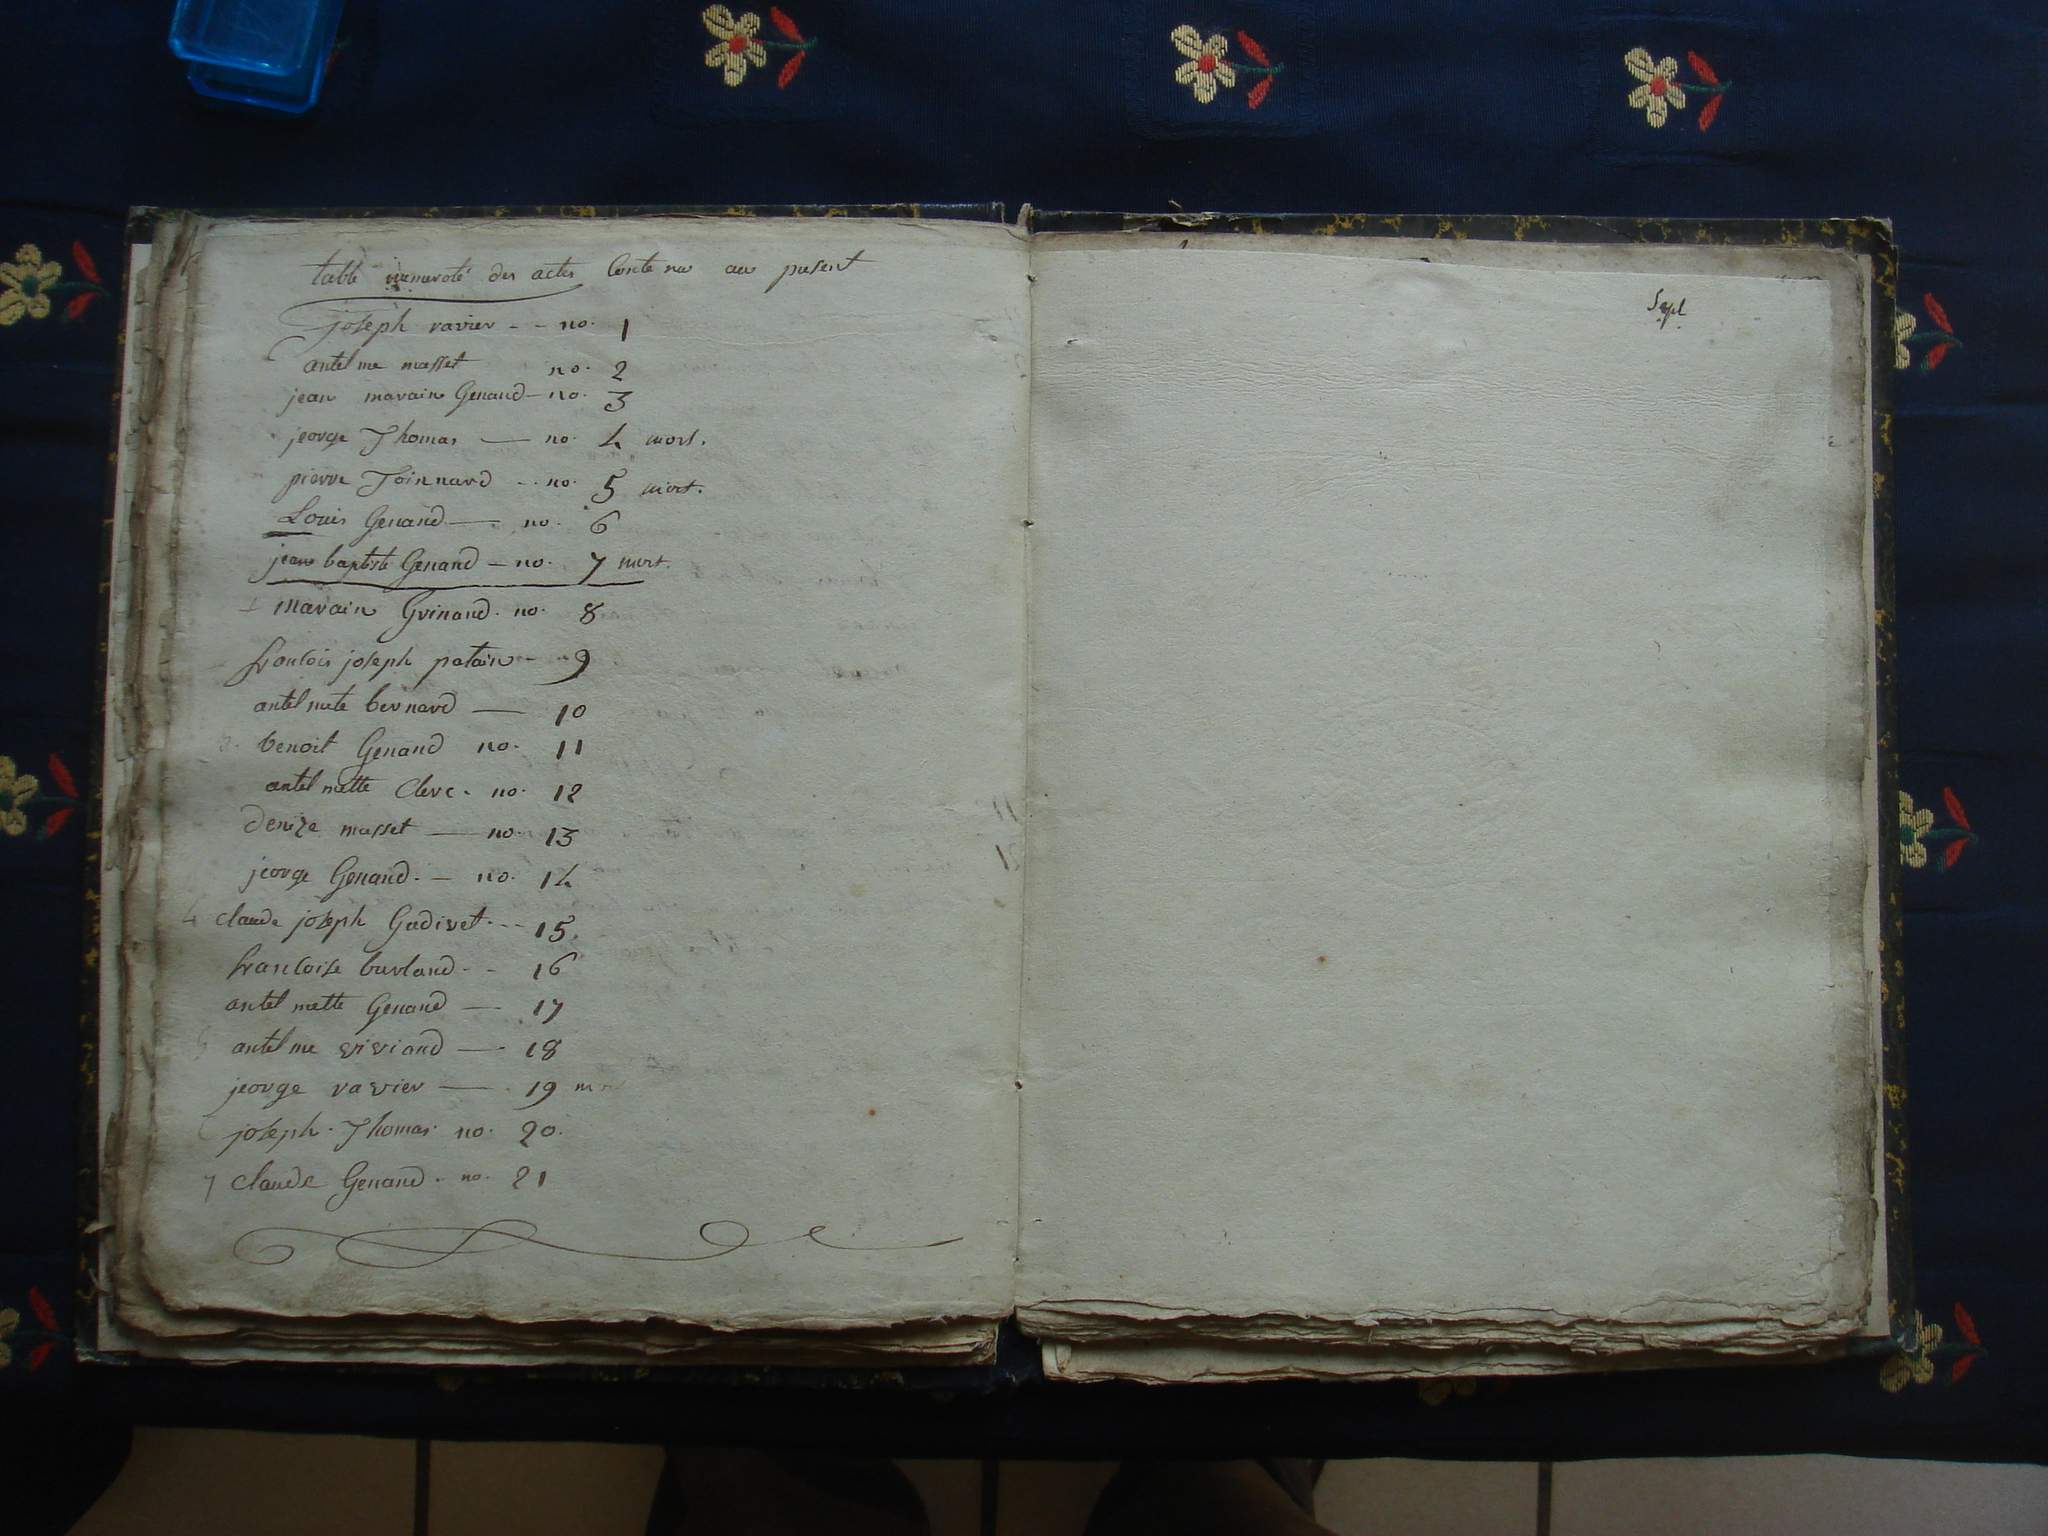 table numeroté des actes Contenu au present
joseph ravier - - no. 1
antelme masset no. 2
jean marain Genand - no. 3
jeorge Thomas — no. 4 mort.
pierre Joinnard - - no. 5 mort.
Louis Genand — no. 6
jean baptiste Genand — no. 7 mort.
marain Grinand. no. 8
francois joseph patain - 9
antelmete bernard — 10
benoit Genand no. 11
antelmette Clerc. no. 12
denize masset — no. 13
jeorge Genand. — no. 14
4 claude joseph Gudivet. - - 15.
francoise burland - - 16
antelmette Genand — 17
5 antelme viviand — 18
jeorge ravier — . 19 mort
joseph. Thomas. no. 20.
7 claude Genand. no. 21
Sept